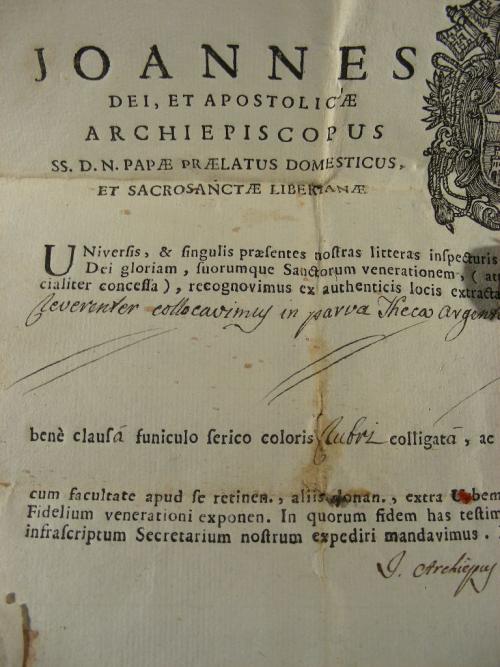 JOANNES
DEI, ET APOSTOLICÆ
ARCHIEPISCOPUS
SS. D. N. PAPÆ PRÆLATUS DOMESTICUS,
ET SACROSANCTÆ LIBERIANÆ
UNiversis, & singulis præsentes nostras litteras inspecturis
Dei gloriam, suorumque Sanctorum venerationem, (
cialiter concessa), recognovimus ex authenticis locis extracta
Reverenter collocavimus in parva Theca Argent
benè clausâ funiculo serico coloris Rubri colligatâ, ac
cum facultate apud se retinen., aliis donan., extra Urbem
Fidelium venerationi exponen. In quorum fidem has testim
infrascriptum Secretarium nostrum expediri mandavimus.
J. Archiepus